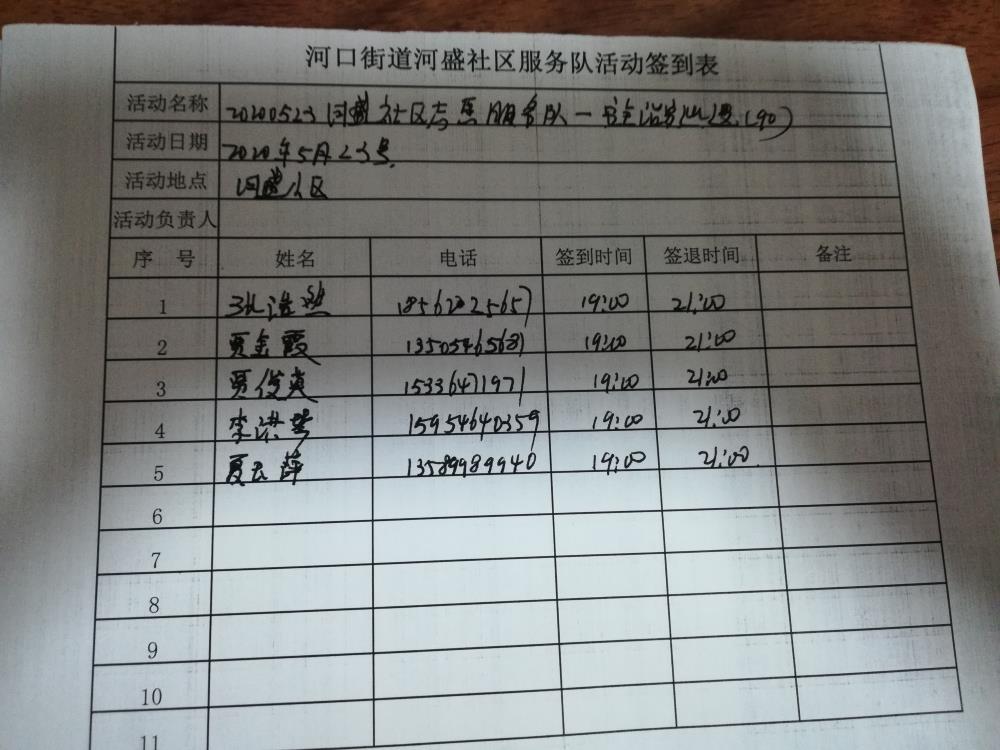 河口街道河盛社区服务队活动签到表
活动名称 20200523河盛社区志愿服务队一 (90)
活动日期 2020年5月23号
活动地点 河盛社区
活动负责人
序 号 姓名 电话 签到时间 签退时间 备注
1 18562025657 19:00 21:00
2 贾金霞 13505465681 19:00 21:00
3 贾俊爽 15336471971 19:00 21:00
4 李洪琴 15954640359 19:00 21:00
5 夏云萍 13589989940 19:00 21:00
6
7
8
9
10
11